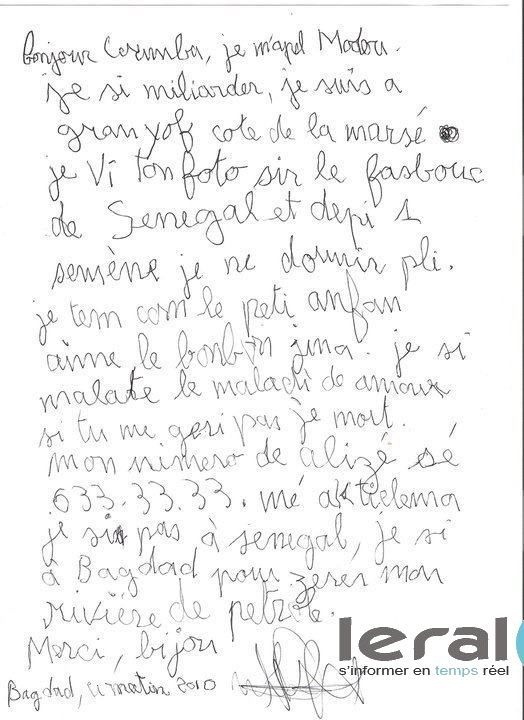 bonjour Carumba, je m'apel Modou.
je si miliarder, je suis a
gran yof cote de la marsé
je Vi ton foto sir le fasbouc
de Senegal et depi 1
semène je ne dormir pli.
je tem com le peti anfan
aime le bonbon jina. je si
malate le maladi de amour
si tu me geri pas je mort.
mon nimero de alizé sé
633.33.33. mé aktielema
je si pas à senegal, je si
à Bagdad pour zerer mon
rivière de petrole.
Merci, bijou
Bagdad, matin 2010
leral
s'informer en temps réel